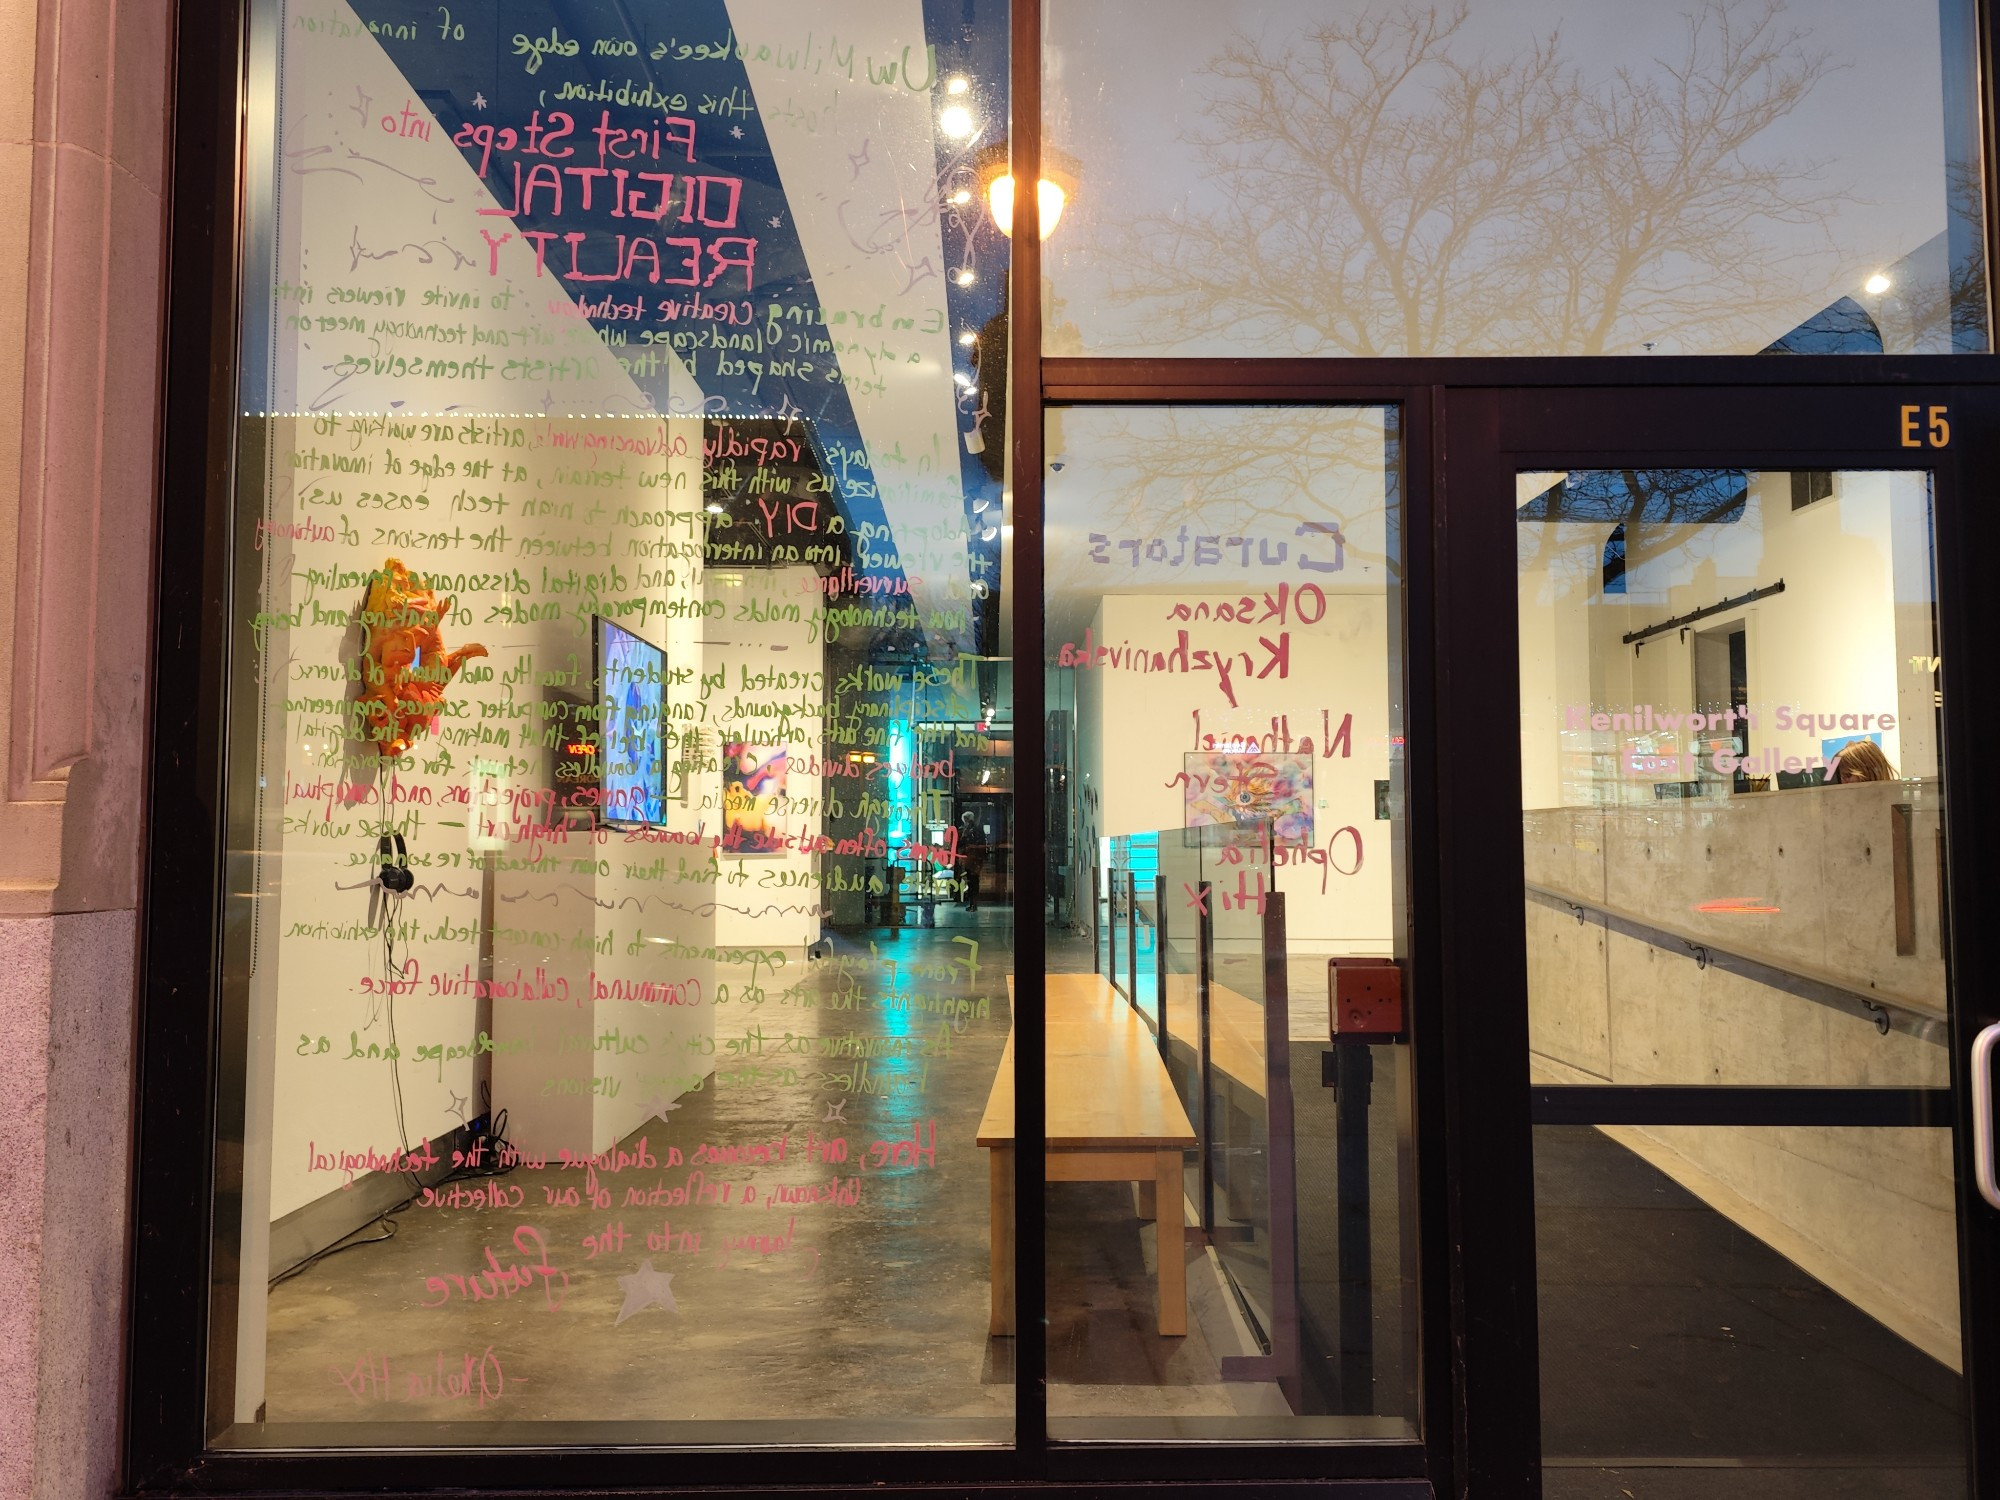 UW Milwaukee's own edge of innovation
hosts this exhibition,
First Steps into
DIGITAL
REALITY
Embracing creative technology to invite viewers into
a dynamic landscape where art and technology meet on
terms shaped by the artists themselves.
In today's rapidly advancing world, artists are working to
familiarize us with this new terrain, at the edge of innovation
Adopting a DIY approach to high tech eases us;
the viewer into an interrogation between the tensions of autonomy
and surveillance, and digital dissonance revealing
how technology molds contemporary modes of making and being
These works created by students, faculty and alumni, of diverse
disciplinary backgrounds, ranging from computer sciences engineering
and the fine arts, articulate the belief that making in the digital
bridges divides, creating a boundless network for exploration.
Through diverse media — games, projections, and conceptual
forms often outside the bounds of "high art" — these works
invite audiences to find their own thread of resonance.
From playful experiments to high concept tech, the exhibition
highlights the arts as a communal, collaborative force.
As innovative as the city's cultural landscape and as
boundless as the visions
Here, art becomes a dialogue with the technological
Unknown, a reflection of our collective
journey into the
future
- Ophelia Hix
Curators
Oksana
Kryzhanivska
Nathaniel
Stern
Ophelia
Hix
E5
Kenilworth Square
East Gallery
OPEN